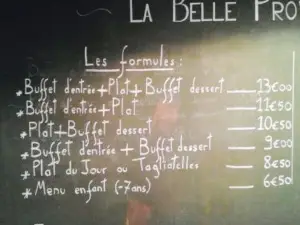 LA BELLE PRO
Les formules :
* Buffet d'entrée + Plat + Buffet dessert — 13€00
* Buffet d'entrée + Plat — 11€50
* Plat + Buffet dessert — 10€50
* Buffet d'entrée + Buffet dessert — 9€00
* Plat du Jour ou Tagliatelles — 8€50
* Menu enfant (-7ans) — 6€50